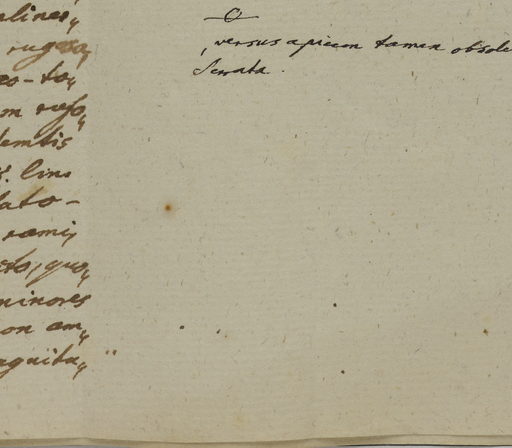 alines,,
rugosa,,
eo-to,,
m rufo,,
dentis
s. lin.
lato-
rami,
eto, quo,,
minores
on am,,
nguita,,
, versus apicem tamen obsole
Serrata.